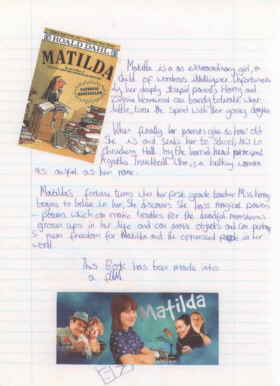 ROALD DAHL
MATILDA
Matilda is a an extraordinary girl, a
child of wondrous intelligence. Unfortunately
her deeply stupid parents Harry and
Zinnia Wormwood can barely tolerate other
little, time the spend with their young daughter
When finally her parents
She is and sends her to School, this is
Crunchem Hall, by the
Agatha Trunchbull who is a bulling woman
as awful as her name.
Matilda's fortune turns when her first grade teacher Miss Honey
begins to believe in her, She discovers She has magical powers
- powers which can make troubles for the dreadful monstrous
grown-ups in her life and can move objects and can perhaps
freedom for Matilda and the oppressed people in her
world.
This Book has been made into
a film.
Matilda